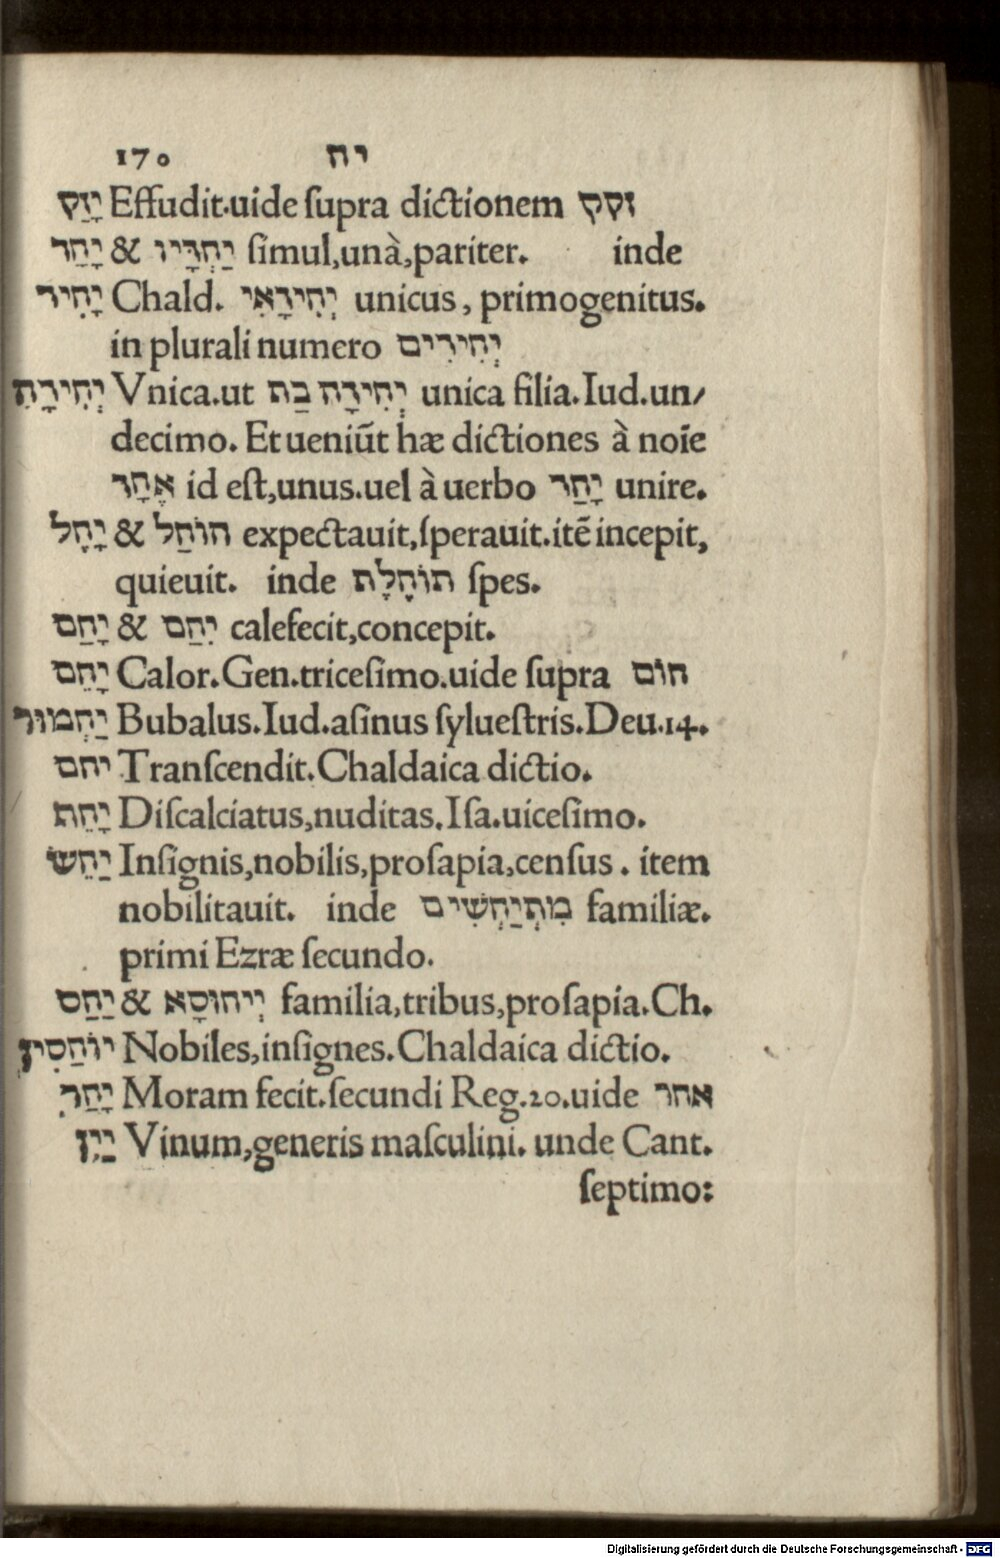 170 יח
יָזַק Effudit.uide ſupra dictionem זקק
יָחַד & יַחְדָּיו ſimul,unà,pariter. inde
יָחִיד Chald. יְחִידָאִי unicus, primogenitus.
in plurali numero יְחִידִים
יְחִידָה Vnica.ut יְחִידָה בַת unica filia.Iud.un/
decimo. Et ueniūt hæ dictiones à noīe
אֶחָד id eſt,unus.uel à uerbo יָחַד unire.
יָחָל & הוֹחַל expectauit,ſperauit.itē incepit,
quieuit. inde תוֹחֶלָת ſpes.
יָחַם & יִחַם calefecit,concepit.
יָחֵם Calor.Gen.triceſimo.uide ſupra חוֹם
יַחְמוּר Bubalus.Iud.aſinus ſylueſtris.Deu.14.
יחם Tranſcendit.Chaldaica dictio.
יָחֵת Diſcalciatus,nuditas.Iſa.uiceſimo.
יַחֵשׂ Inſignis,nobilis,proſapia,cenſus. item
nobilitauit. inde מִתְיַחְשִׂים familiæ.
primi Ezræ ſecundo.
יַחַס & יְיחוּסָא familia,tribus,proſapia.Ch.
יוֹחַסִין Nobiles,inſignes.Chaldaica dictio.
יָחַר Moram fecit.ſecundi Reg.20.uide אחר
יַיִן Vinum,generis maſculini. unde Cant.
ſeptimo:
Digitalisierung gefördert durch die Deutsche Forschungsgemeinschaft - DFG